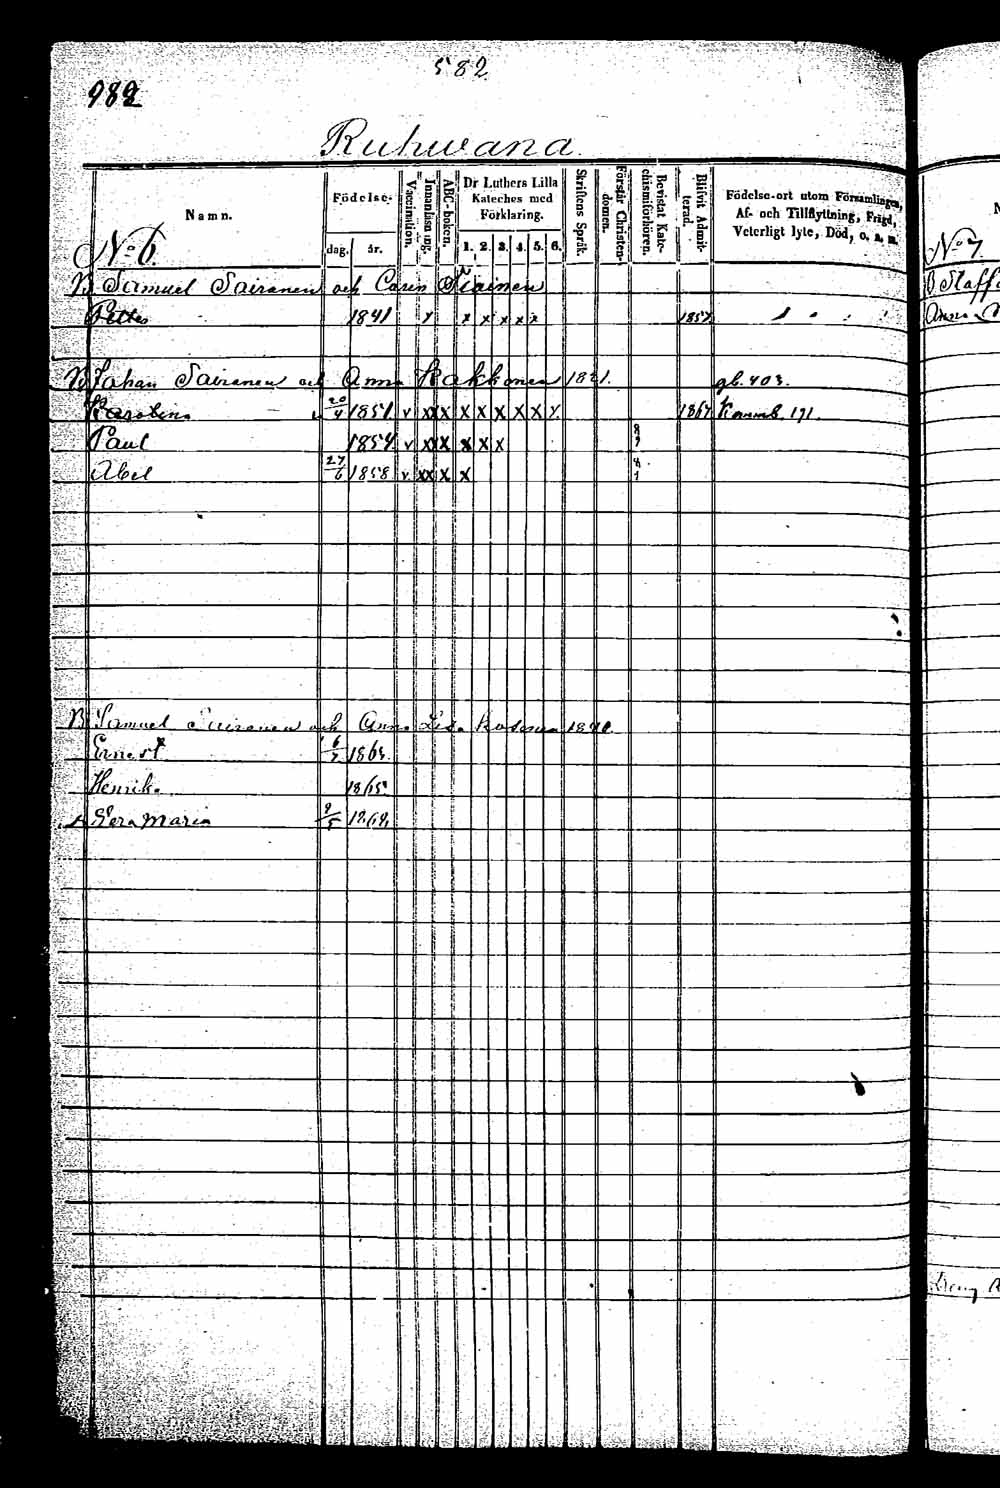 582
982
Ruhwana.
Namn.
Födelse-
dag. år.
Vaccination.
Innanläsning.
ABC-boken.
Dr Luthers Lilla Kateches med Förklaring.
1. 2. 3. 4. 5. 6.
Skriftens Språk.
Förstår Christendomen.
Bevistat Katechismiförhören.
Blifvit Admitterad.
Födelse-ort utom Församlingen,
Af- och Tillflyttning, Frägd,
Veterligt lyte, Död, o. s. m.
No 6.
Samuel Sairanen och Carin Tiainen
Petter 1841 x x x x x x 1857
Johan Sairanen och Anna Kakkonen 1821. gb. 403.
Karolina 20/4 1851. v xx x x x x x x x 1867 Kommb. 191.
Paul 1854 v xx x x x x
Abel 27/6 1858 v xx x x
B Samuel Sairanen och Anna Lisa 1840.
Ernest 6/7 1863.
Henrik 1865.
Wera Maria 9/5 1868
No 7.
B Staff
Anna